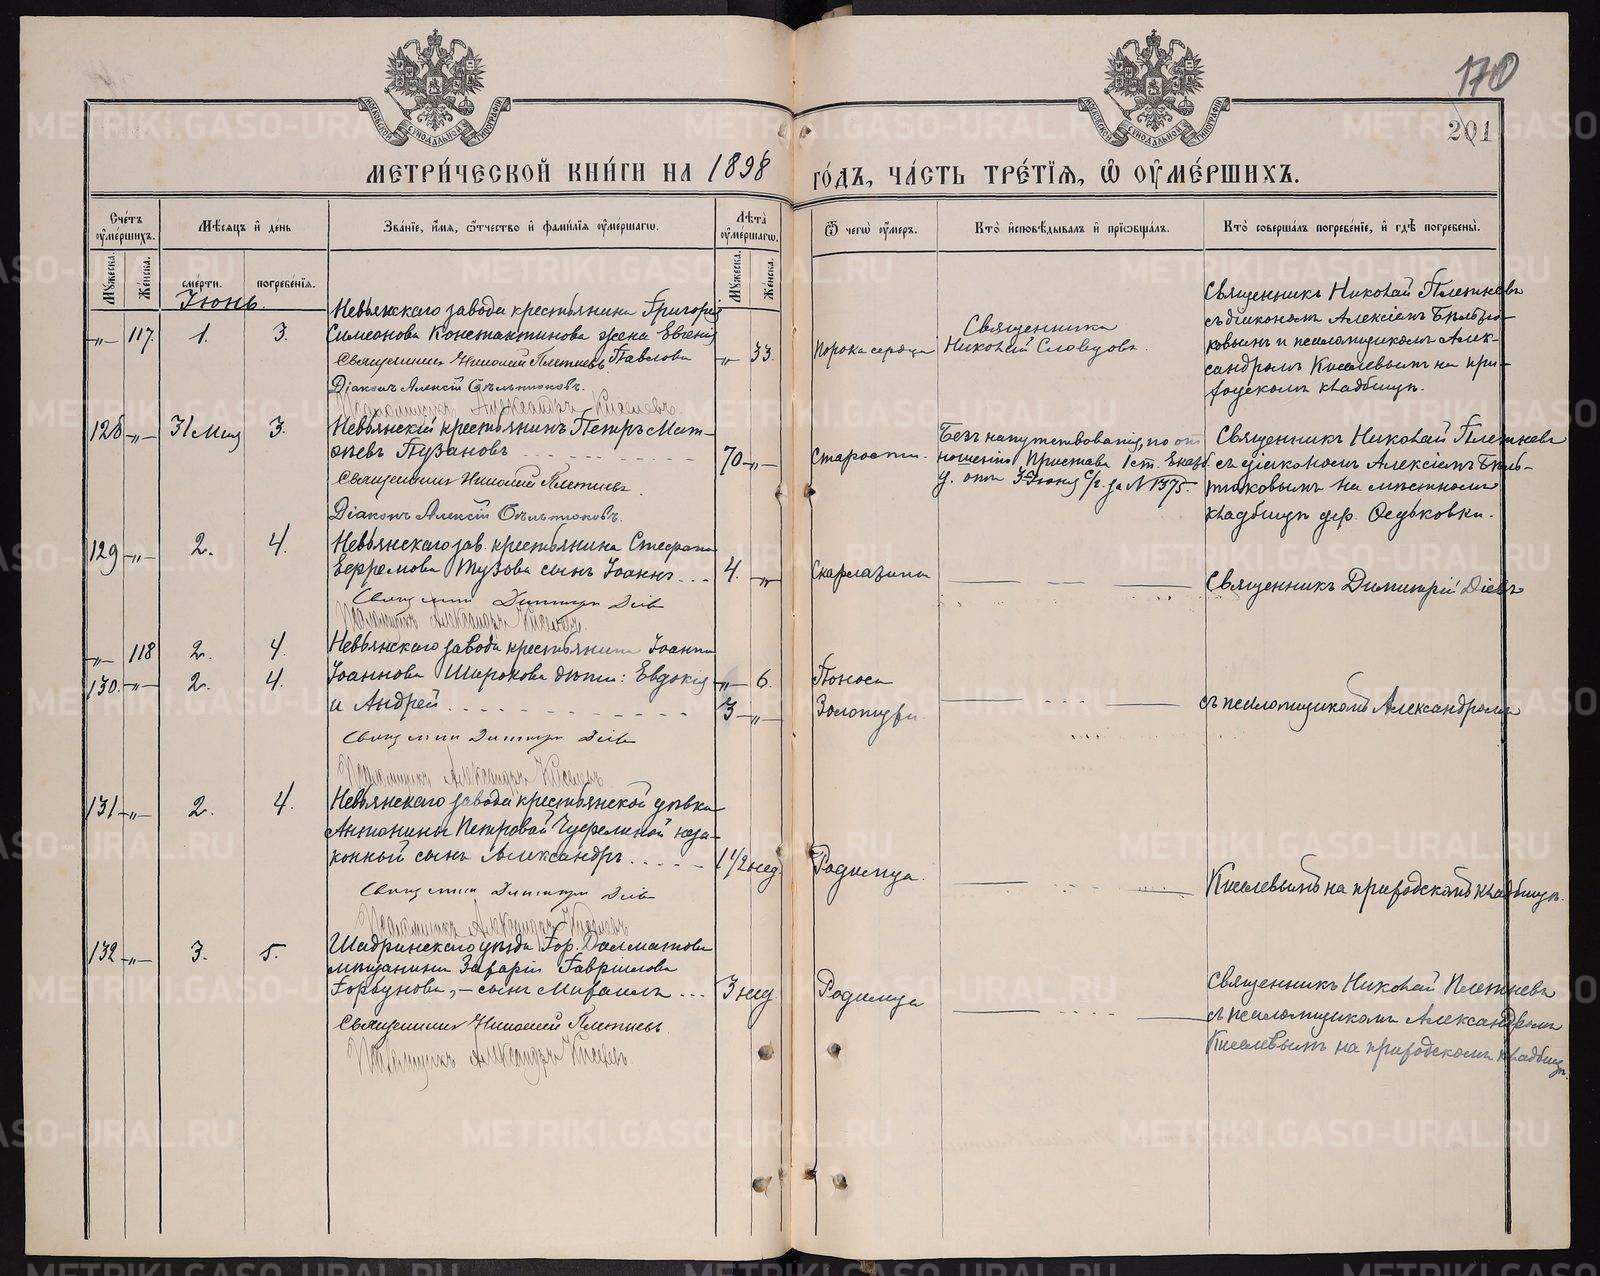 170
201
МЕТРИ́ЧЕСКОЙ КНИ́ГИ НА 1898 ГО́ДЪ, ЧА́СТЬ ТРЕ́ТЇѦ, Ѿ ОУ҆МЕ́РШИХЪ.
Сче́тъ оу҆ме́ршихъ.
Мꙋ́жеска.
Же́нска.
Мѣ́сѧцъ и҆ де́нь
сме́рти.
погребе́нїѧ.
Зва́нїе, и҆́мѧ, ѻ҆́тчество и҆ фамі́лїѧ оу҆ме́ршагѡ.
Лѣ́та оу҆ме́ршагѡ.
Мꙋ́жеска.
Же́нска.
Ѿ чегѡ̀ оу҆́меръ.
Кто̀ и҆сповѣ́дывалъ и҆ прїѡбща́лъ.
Кто̀ соверша́лъ погребе́нїе, и҆ гдѣ̀ погребены̀.
Іюнь.
-„- 117. 1. 3.
Невьянскаго завода крестьянина Григорія
Симеонова Константинова жена Евгенія
Павлова -„- 33.
Священникъ Николай Плетневъ
Діаконъ Алексій Бѣльтюковъ.
Псаломщикъ Александръ Киселевъ
Порока сердца
Священникъ
Николай Словцовъ.
Священникъ Николай Плетневъ
съ діакономъ Алексіемъ Бѣльтю-
ковымъ и псаломщикомъ Алек-
сандромъ Киселевымъ на при-
ходскомъ кладбищѣ.
128 -„- 31 Мая 3.
Невьянскій крестьянинъ Петръ Мат-
ѳіевъ Пузановъ 70 -„-
Священникъ Николай Плетневъ.
Діаконъ Алексій Бѣльтюковъ.
Старости.
Безъ напутствованія, по от
ношенію Пристава 1 ст. Екатб.
у. отъ 3 Іюня с/г. за № 1375.
Священникъ Николай Плетневъ
съ діакономъ Алексіемъ Бѣль-
тюковымъ на мѣстномъ
кладбищѣ дер. Осиновки.
129 -„- 2. 4.
Невьянскаго зав. крестьянина Стефана
Ефремова Тузова сынъ Іоаннъ 4. -„-
Священникъ Димитрій Діевъ
Псаломщикъ Александръ Киселевъ
Скарлатины
Священникъ Димитрій Діевъ
-„- 118 2. 4.
130. -„- 2. 4.
Невьянскаго завода крестьянина Іоанна
Іоаннова Широкова дѣти: Евдокія -„- 6.
и Андрей 3 -„-
Священникъ Димитрій Діевъ
Псаломщикъ Александръ Киселевъ
Поноса
Золотухи.
съ псаломщикомъ Александромъ
131 -„- 2. 4.
Невьянскаго завода крестьянской дѣвки
Антонины Петровой незa-
конный сынъ Александръ 1 1/2 нед
Священникъ Димитрій Діевъ
Псаломщикъ Александръ Киселевъ
Родимца.
Киселевымъ на приходскомъ кладбищѣ.
132 -„- 3. 5.
Шадринскаго уѣзда гор. Далматова
мѣщанина Захаріи Гавріилова
Горбунова, – сынъ Михаилъ 3 нед
Священникъ Николай Плетневъ.
Псаломщикъ Александръ Киселевъ
Родимца
Священникъ Николай Плетневъ
съ псаломщикомъ Александромъ
Киселевымъ на приходскомъ кладбищѣ.
METRIKI.GASO-URAL.RU